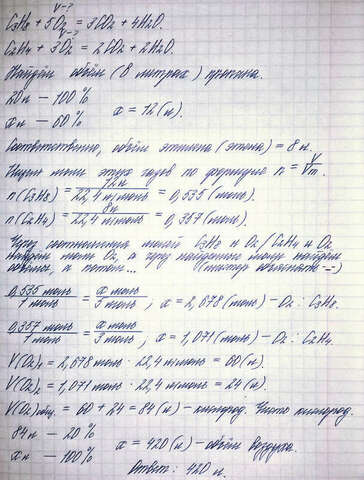 V-?
C3H8 + 5O2 = 3CO2 + 4H2O.
V-?
C2H4 + 3O2 = 2CO2 + 2H2O.
Найдём объём (в литрах) пропана.
20л — 100%
xл — 60%
x = 12(л).
Соответственно, объём этилена (этена) = 8л.
Ищем моли этих газов по формуле n = V/Vm.
n(C3H8) = 12л / 22,4 л/моль = 0,535(моль).
n(C2H4) = 8л / 22,4 л/моль = 0,357(моль).
Через соотношение молей C3H8 и O2/C2H4 и O2
найдём моли O2, а через найденные моли найдём
объёмы, а потом...
0,535 моль / 1 моль = x моль / 5 моль, x = 2,678(моль) - O2 : C3H8.
0,357 моль / 1 моль = x моль / 3 моль, x = 1,071(моль) - O2 : C2H4.
V(O2)1 = 2,678моль · 22,4 л/моль = 60(л).
V(O2)2 = 1,071моль · 22,4 л/моль = 24(л).
V(O2)общ. = 60 + 24 = 84(л) - кислород. Чисто кислород.
84л — 20%
xл — 100%
x = 420(л) - объём воздуха.
Ответ: 420 л.